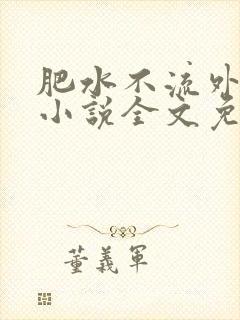 肥水不流外
小說全文免
董義軍